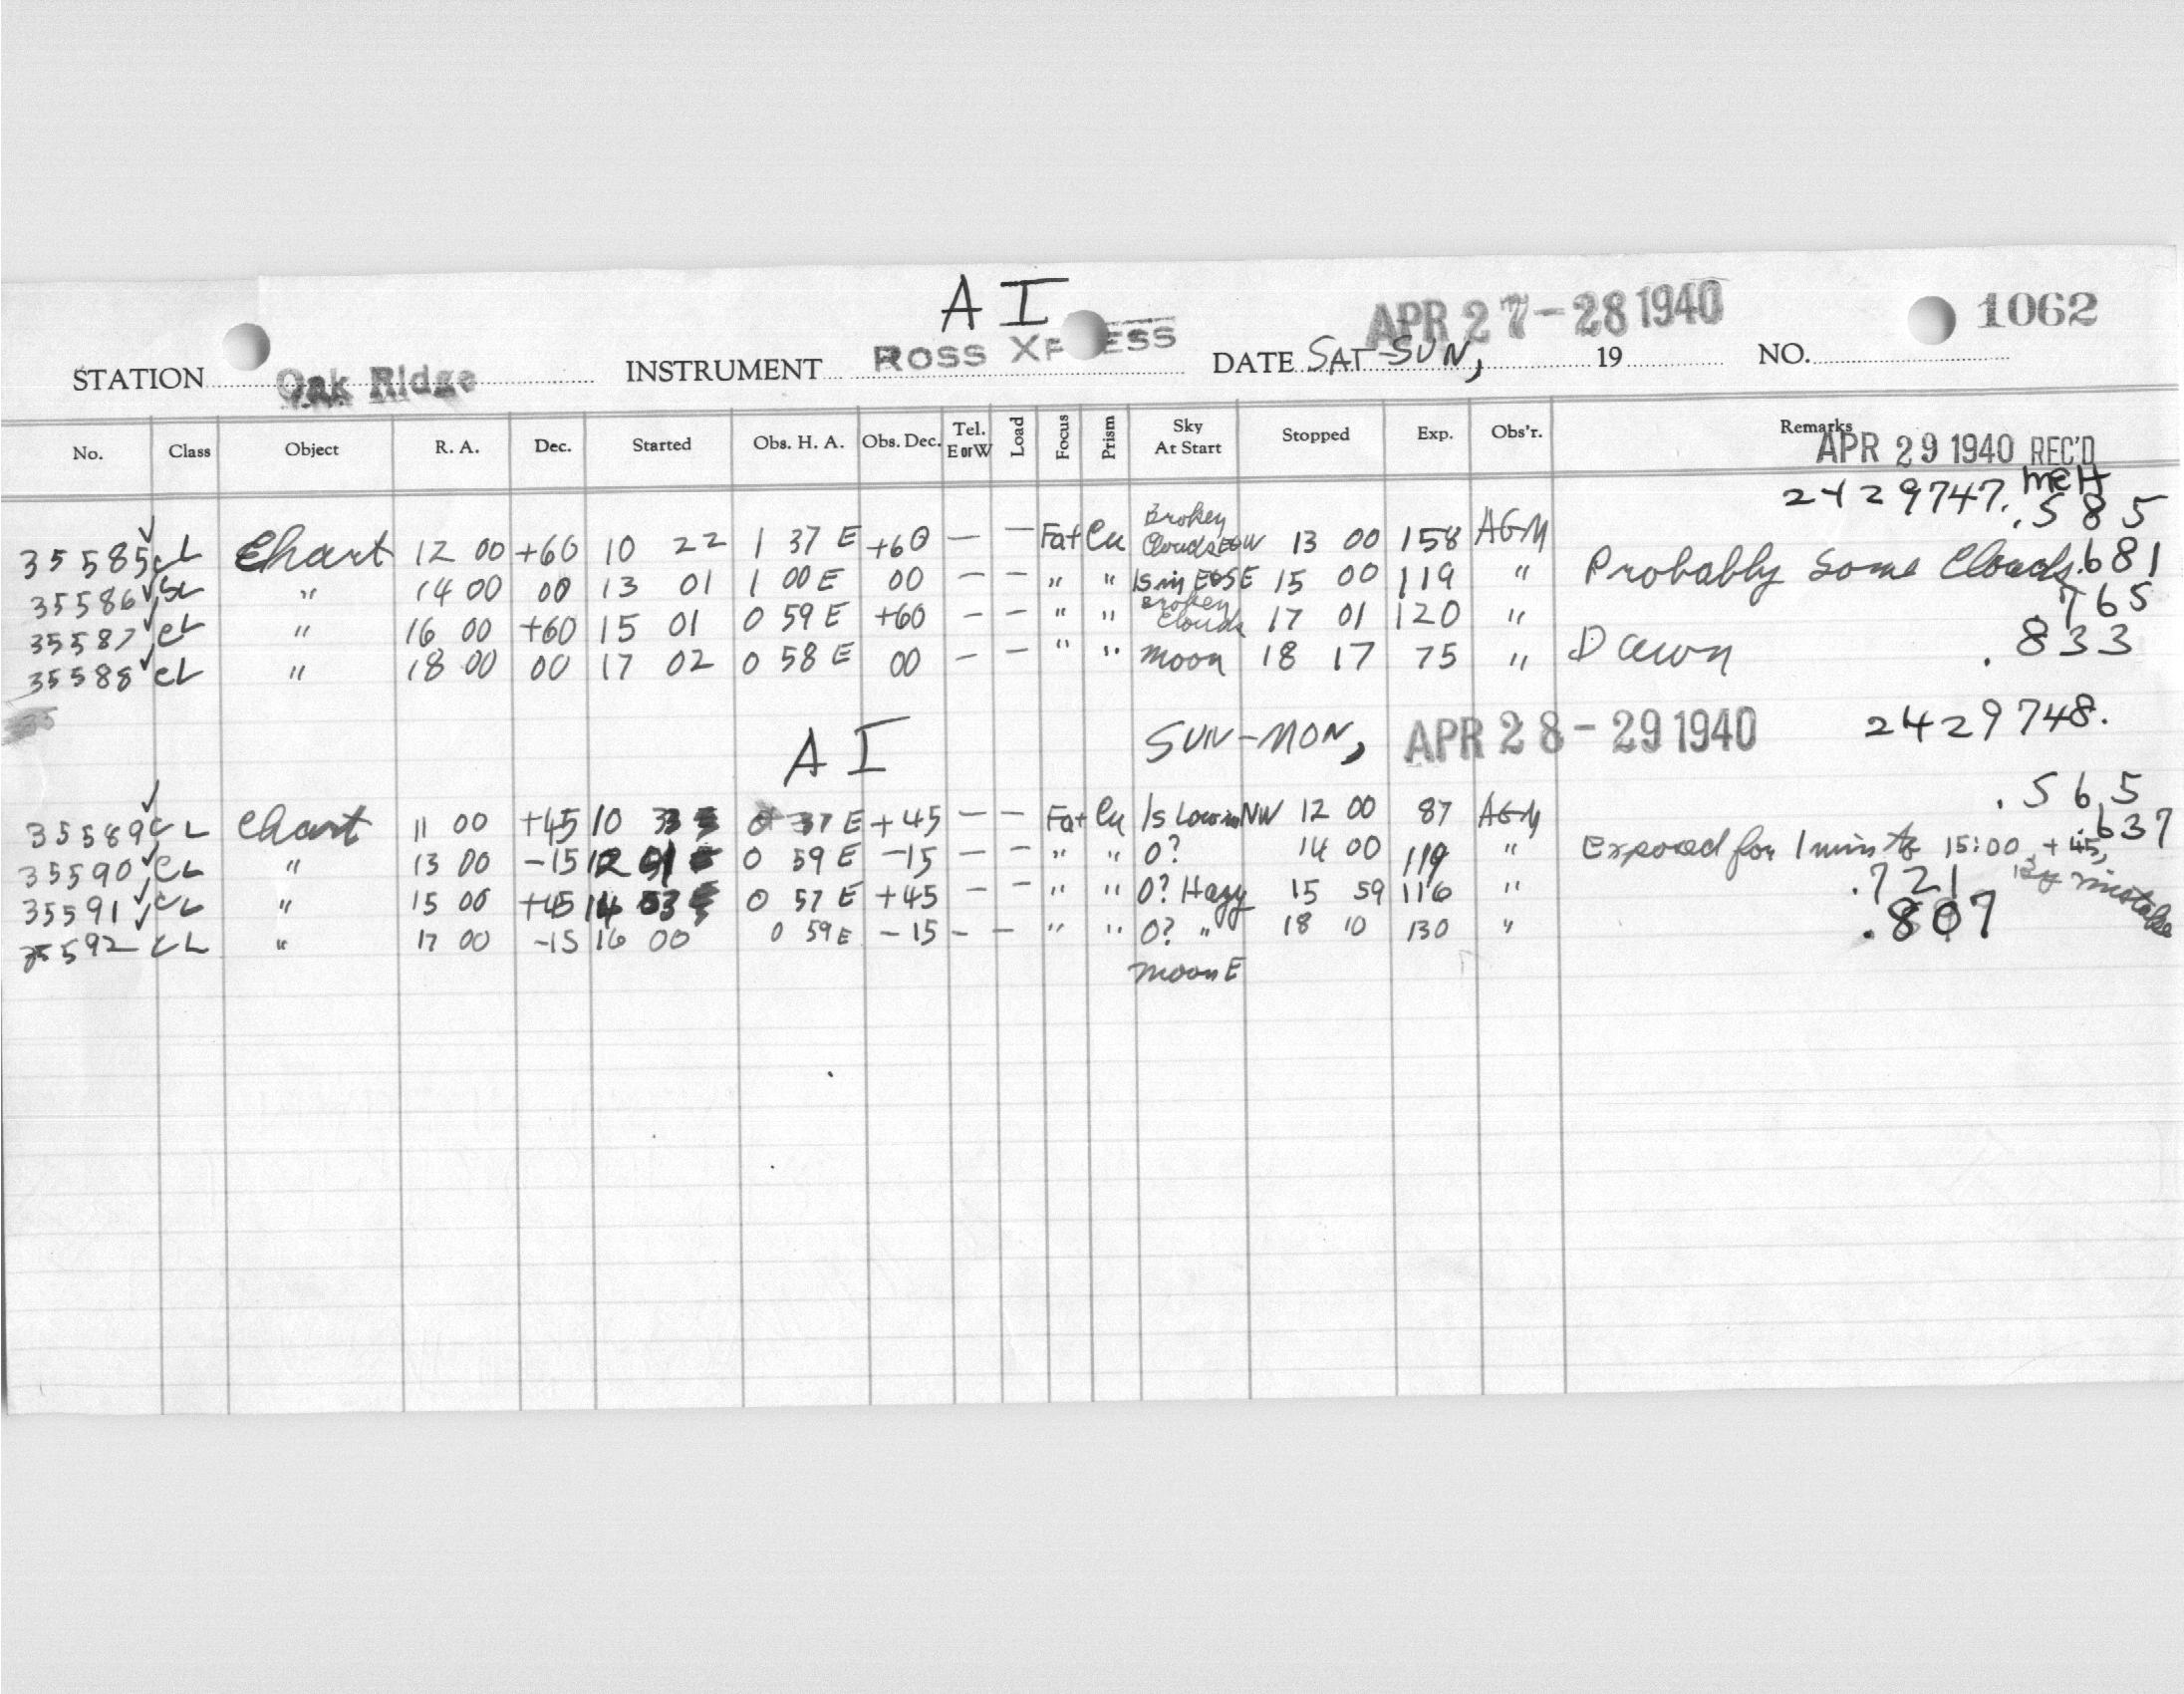 A I
APR 27-28 1940
1062
STATION Oak Ridge INSTRUMENT ROSS DATE SAT-SUN, 19 NO.
No. Class Object R. A. Dec. Started Obs. H. A. Obs. Dec. Tel. E or W Load Focus Prism Sky At Start Stopped Exp. Obs'r. Remarks
APR 29 1940 REC'D
McH
2429747.
.585
35585 ✓ CL Chart 12 00 +60 10 22 1 37 E +60 — — — Fat Cu Broken Clouds 13 00 158 AGM
35586 ✓ " 14 00 00 13 01 1 00 E 00 — — " " 1s in E & SE 15 00 119 " Probably Some Clouds .681
35587 ✓ CL " 16 00 +60 15 01 0 59 E +60 — — " " Broken Clouds 17 01 120 " .765
35588 ✓ CL " 18 00 00 17 02 0 58 E 00 — — " " moon 18 17 75 " Dawn .833
A I SUN-MON, APR 28-29 1940 2429748.
.565
35589 ✓ CL Chart 11 00 +45 10 33 0 37 E +45 — — Fat Cu 1s Low in NW 12 00 87 AGM
.637
35590 ✓ CL " 13 00 -15 12 01 0 59 E -15 — — " " 0? 14 00 119 " Exposed for 1 min 15:00, +45, By mistake
35591 ✓ CL " 15 00 +45 14 03 0 57 E +45 — — " " 0? Hazy 15 59 116 " .721
35592 CL " 17 00 -15 16 00 0 59 E -15 — — " " 0? " 18 10 130 " .807
moon E